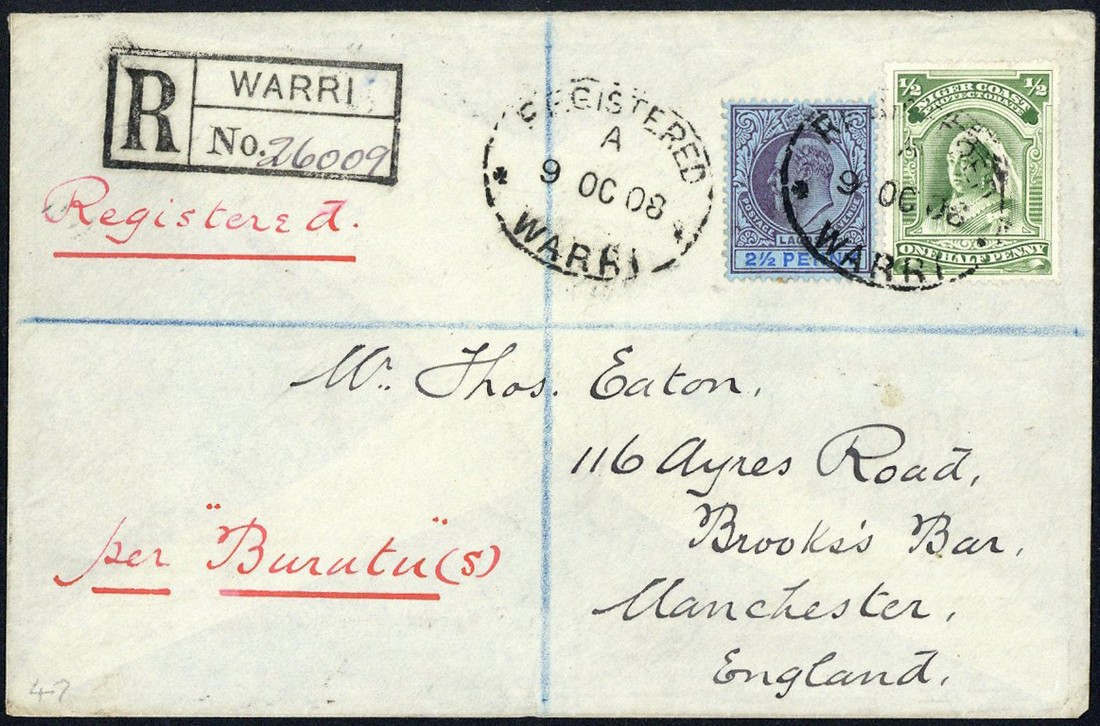 R
WARRI
No. 26009
Registered.
REGISTERED
A
9 OC 08
WARRI
POSTAGE
LAG
2½ PENN
9 OC 08
WARRI
½ ½
NIGER COAST
PROTECTORATE
ONE HALF PENNY
Mr. Thos. Eaton,
116 Ayres Road,
Brooks's Bar,
Manchester,
England.
per "Burutu" (s)
47